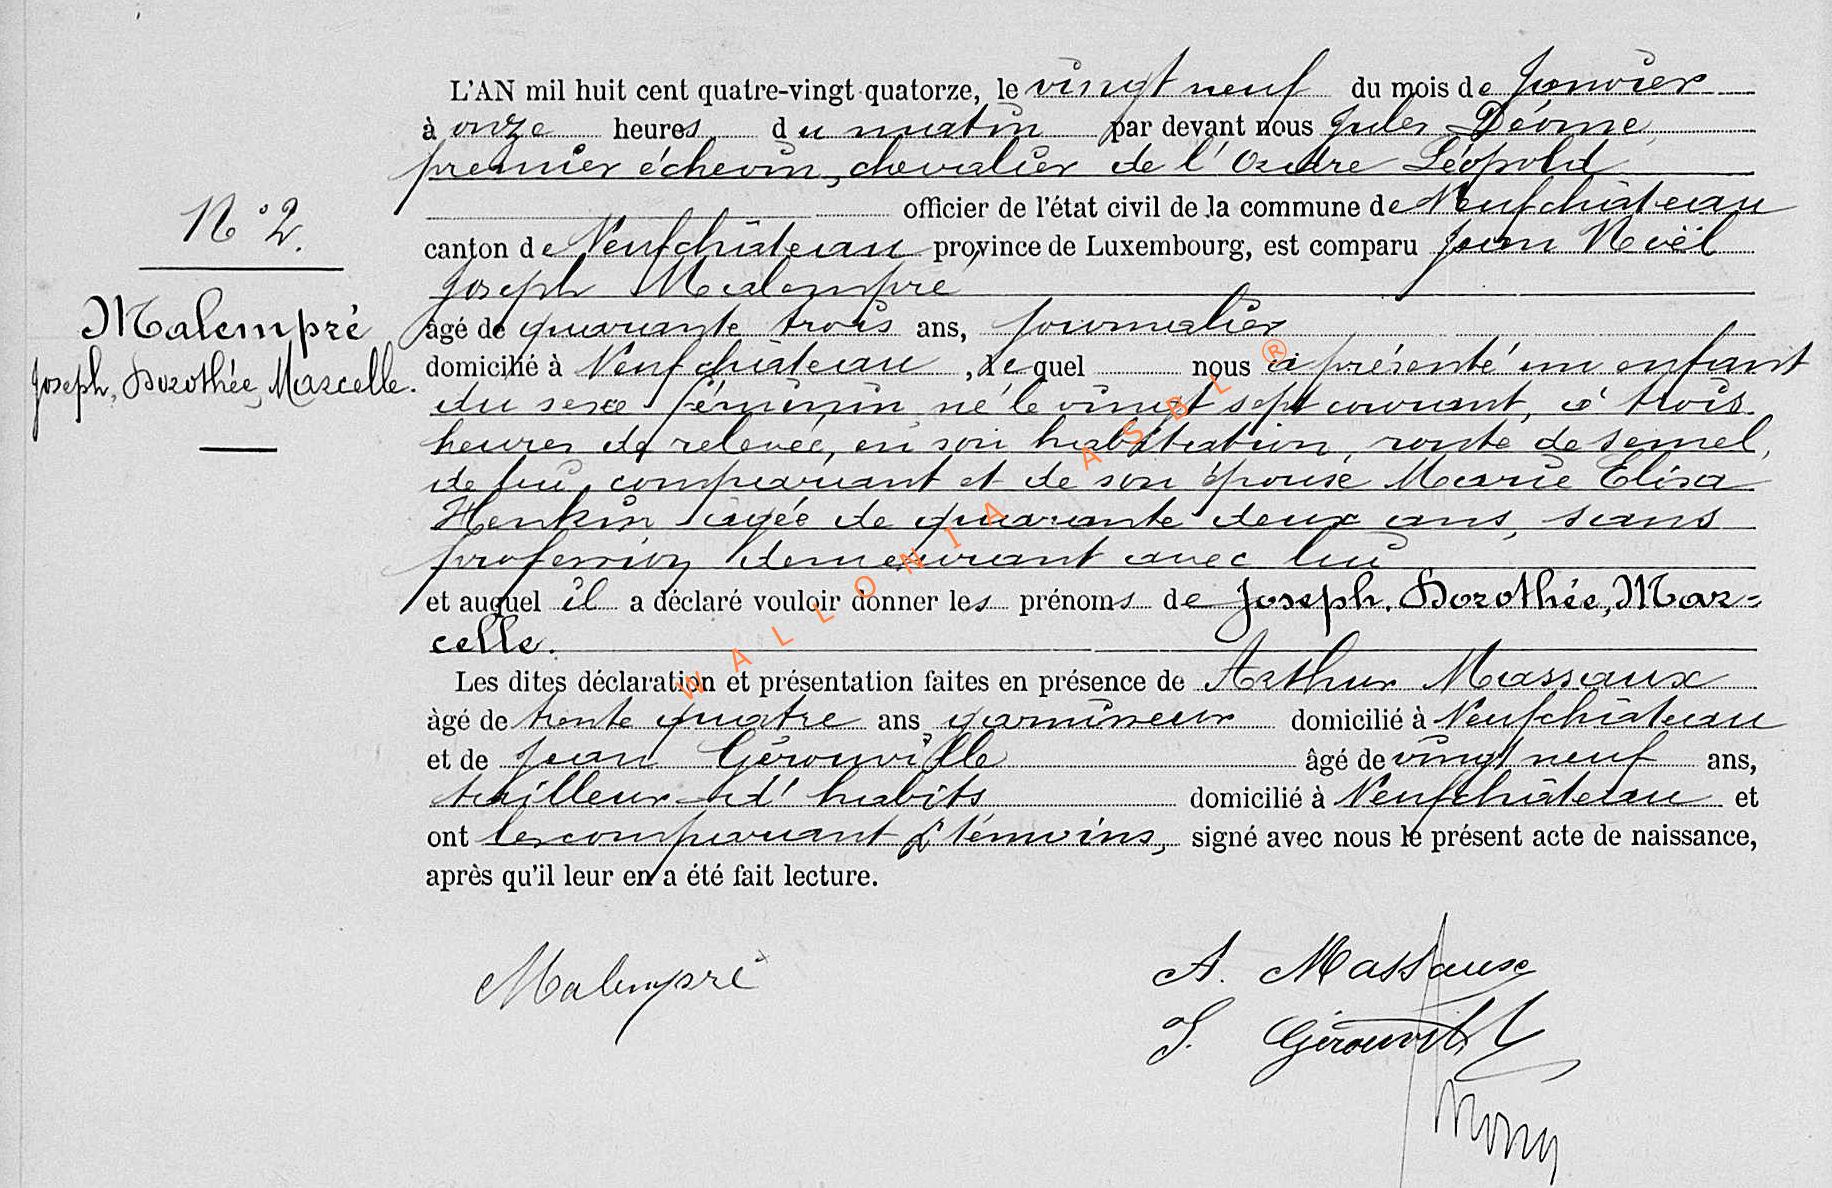 L'AN mil huit cent quatre-vingt quatorze, le vingt neuf du mois de Janvier
à onze heures du matin par devant nous Jules Déome,
premier échevin, chevalier de l'Ordre Léopold
officier de l'état civil de la commune de Neufchâteau
N° 2.
canton de Neufchâteau province de Luxembourg, est comparu Jean Noël
Joseph Malempré
Malempré
âgé de quarante trois ans, journalier
Joseph, Dorothée, Marcelle.
domicilié à Neufchâteau, lequel nous a présenté un enfant
du sexe féminin né le vingt sept courant, à trois
heures de relevée, en son habitation, route de Semel,
de lui comparant et de son épouse Marie Elisa
Henkin âgée de quarante deux ans, sans
profession demeurant avec lui
et auquel il a déclaré vouloir donner les prénoms de Joseph, Dorothée, Mar-
celle.
Les dites déclaration et présentation faites en présence de Arthur Massaux
âgé de trente quatre ans garnisseur domicilié à Neufchâteau
et de Jean Gérouville âgé de vingt neuf ans,
tailleur d'habits domicilié à Neufchâteau et
ont les comparant & témoins, signé avec nous le présent acte de naissance,
après qu'il leur en a été fait lecture.
Malempré
A. Massaux
J. Gérouville
WALLONIA ASBL ®